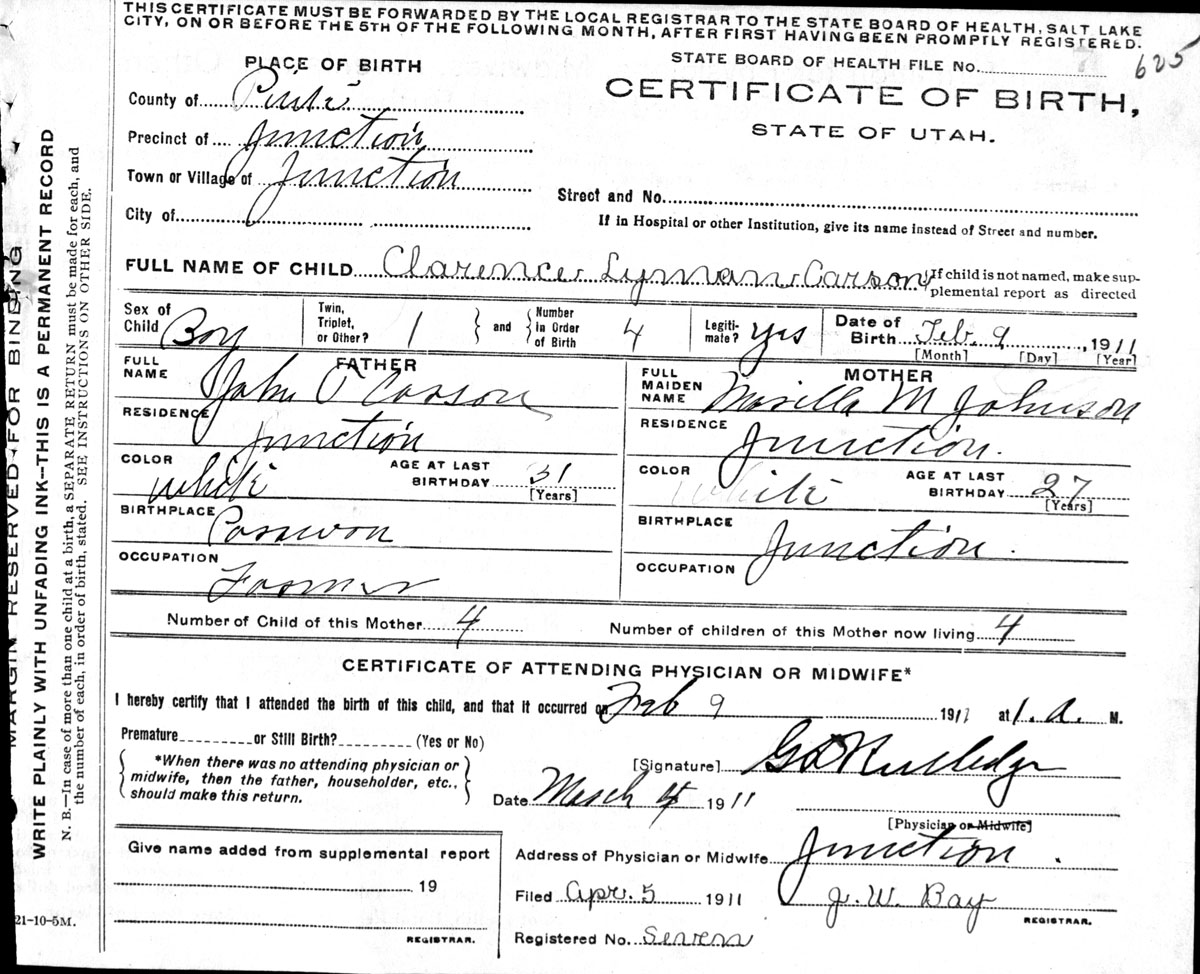 THIS CERTIFICATE MUST BE FORWARDED BY THE LOCAL REGISTRAR TO THE STATE BOARD OF HEALTH, SALT LAKE
CITY, ON OR BEFORE THE 5TH OF THE FOLLOWING MONTH, AFTER FIRST HAVING BEEN PROMPTLY REGISTERED.
STATE BOARD OF HEALTH FILE No. 625
PLACE OF BIRTH
CERTIFICATE OF BIRTH,
STATE OF UTAH.
County of Piute
Precinct of Junction
Town or Village of Junction
Street and No.
City of
If in Hospital or other Institution, give its name instead of Street and number.
FULL NAME OF CHILD Clarence Lyman Carson
If child is not named, make sup-
plemental report as directed
Sex of Child Boy
Twin, Triplet, or Other? 1
and
Number in Order of Birth 4
Legiti- mate? yes
Date of Birth Feb. 9, 1911
[Month] [Day] [Year]
FATHER
FULL NAME John O Carson
MOTHER
FULL MAIDEN NAME M Johnson
RESIDENCE Junction
RESIDENCE Junction.
COLOR White
AGE AT LAST BIRTHDAY 31
[Years]
COLOR White
AGE AT LAST BIRTHDAY 27
[Years]
BIRTHPLACE Parowon
BIRTHPLACE Junction.
OCCUPATION Farmer
OCCUPATION
Number of Child of this Mother 4
Number of children of this Mother now living 4
CERTIFICATE OF ATTENDING PHYSICIAN OR MIDWIFE*
I hereby certify that I attended the birth of this child, and that it occurred on Feb 9 1911 at 1. a. M.
Premature or Still Birth? (Yes or No)
*When there was no attending physician or
midwife, then the father, householder, etc.,
should make this return.
[Signature] Rutledge
Date March 4 1911
[Physician or Midwife]
Give name added from supplemental report
19
REGISTRAR.
Address of Physician or Midwife Junction.
Filed Apr. 5 1911 J. W. Bay
REGISTRAR.
Registered No. Seven
21-10-5M.
MARGIN RESERVED FOR BINDING
WRITE PLAINLY WITH UNFADING INK--THIS IS A PERMANENT RECORD
N. B.—In case of more than one child at a birth, a SEPARATE RETURN must be made for each, and
the number of each, in order of birth, stated. SEE INSTRUCTIONS ON OTHER SIDE.